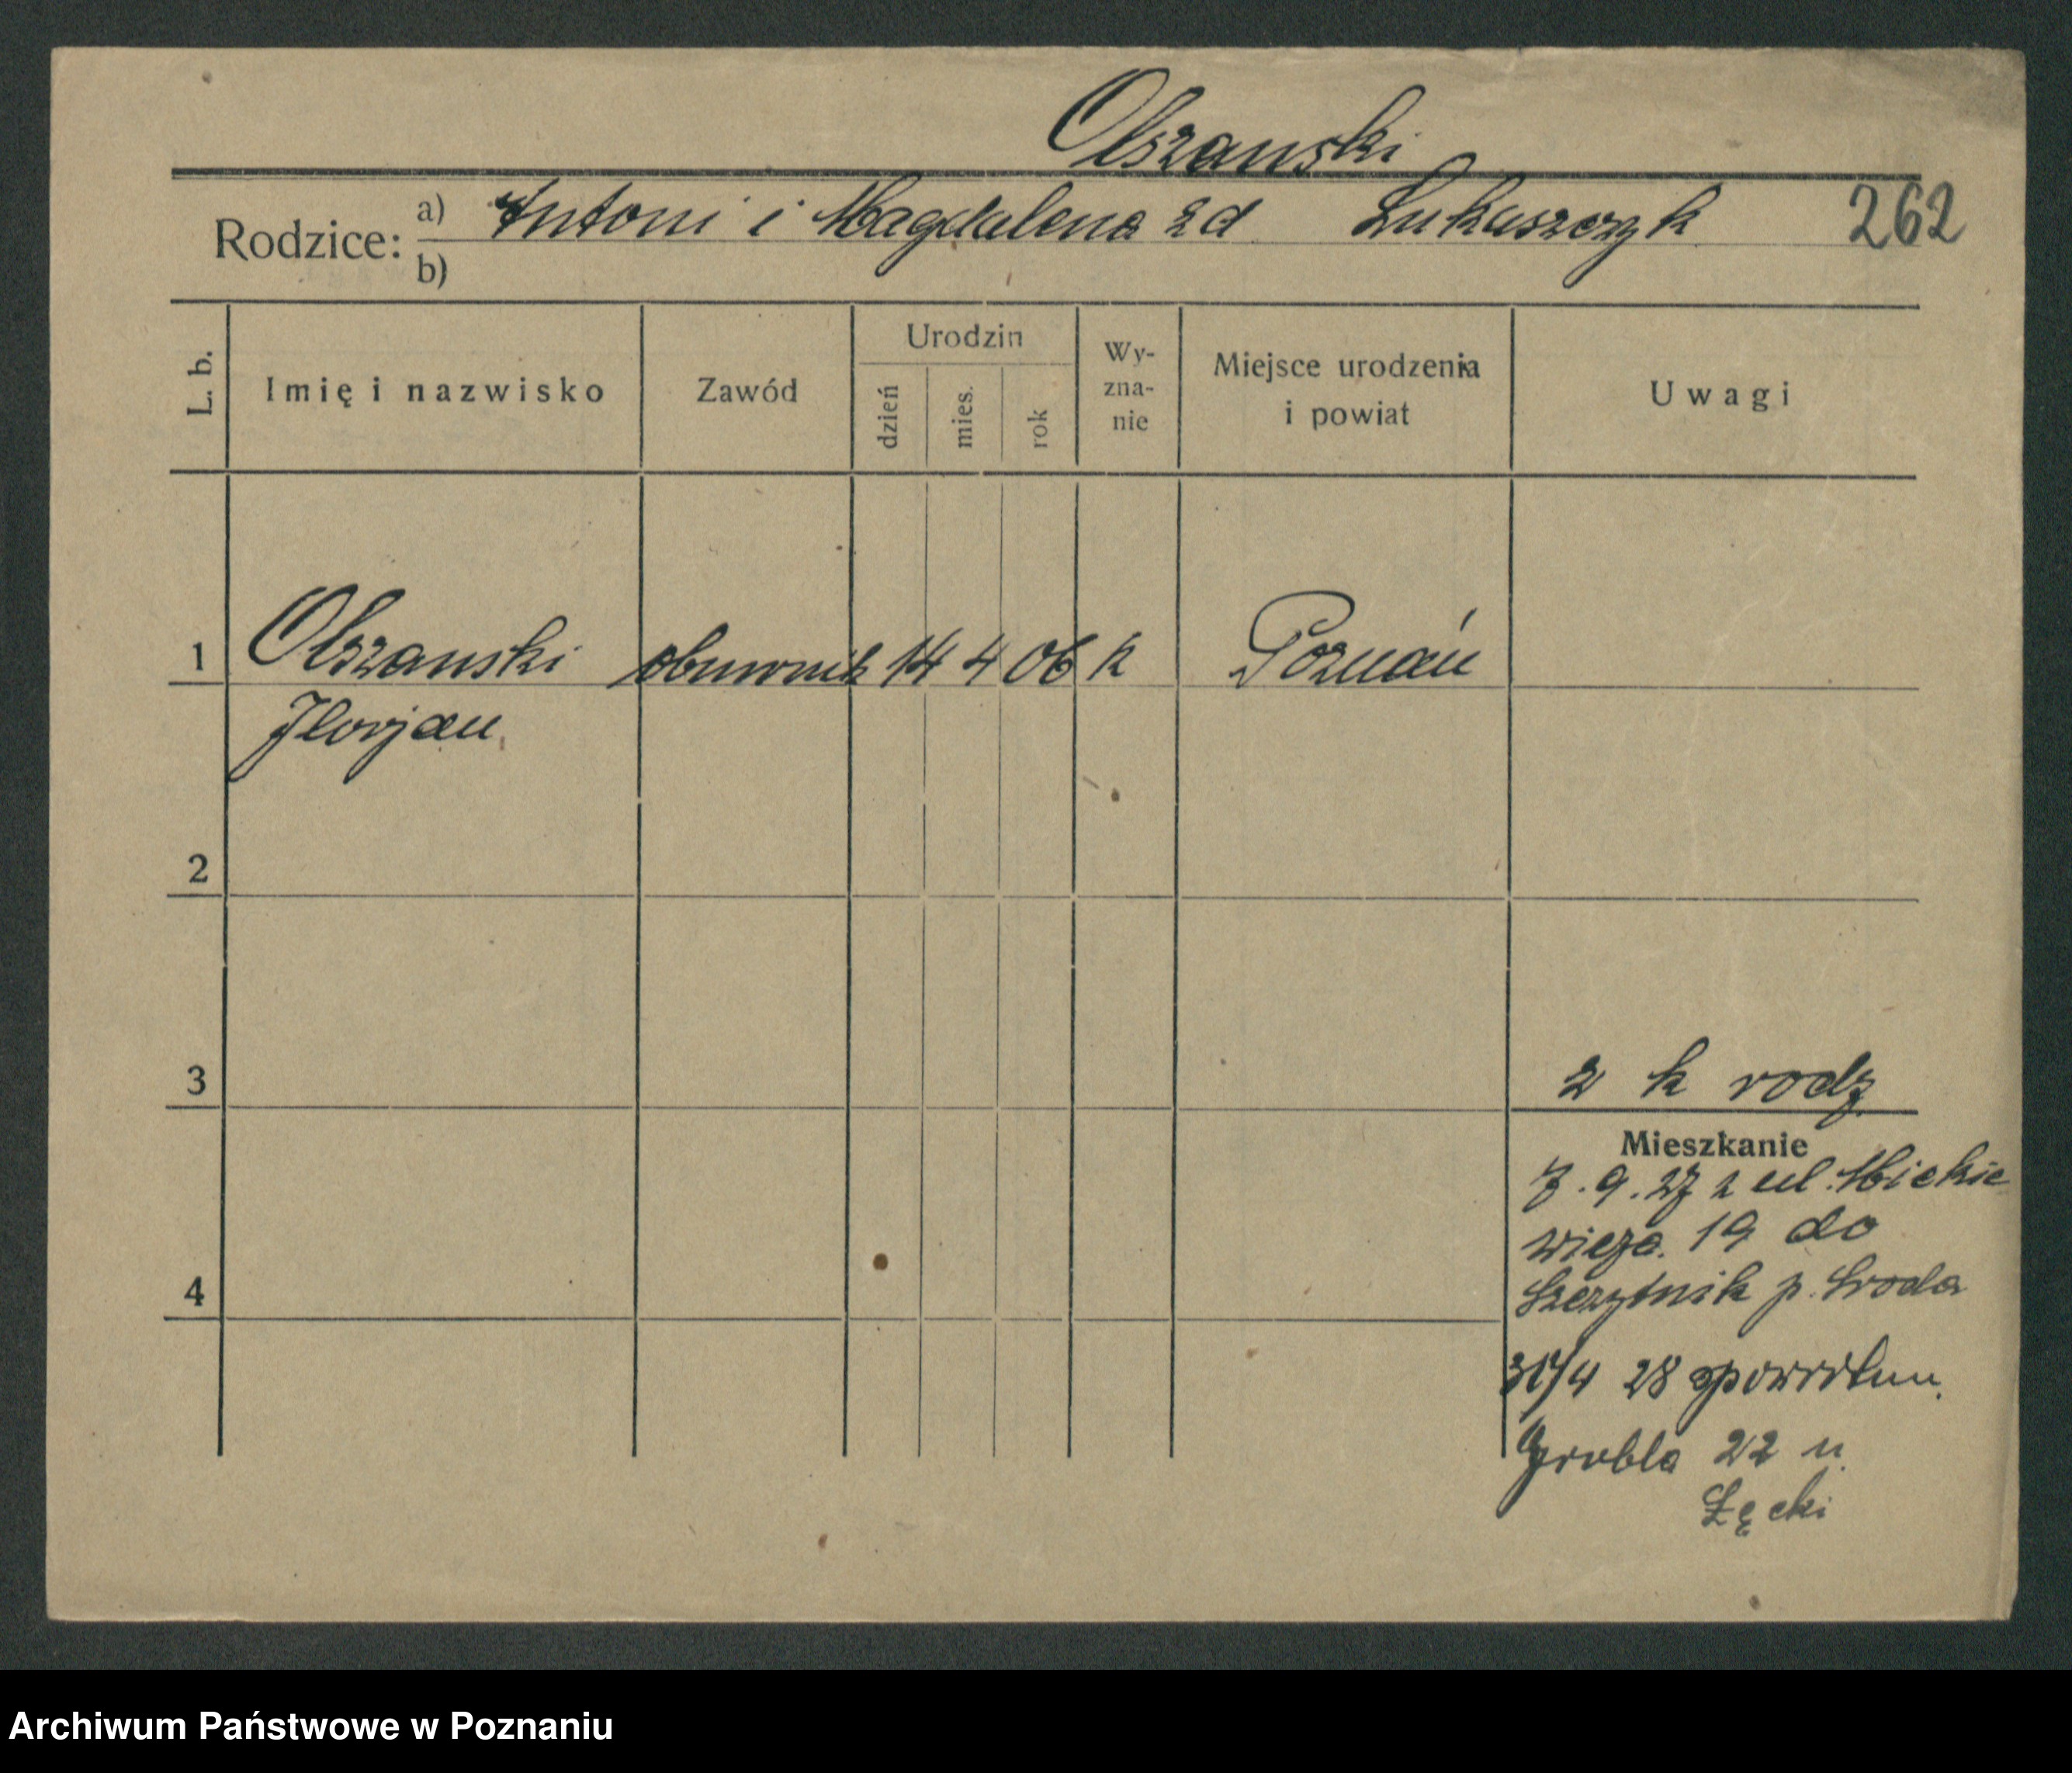 Olszanski
Rodzice: a) Antoni i Magdalena zd Łukaszczyk 262
b)
L. b. Imię i nazwisko Zawód Urodzin dzień mies. rok Wy-zna-nie Miejsce urodzenia i powiat Uwagi
1 Olszanski obuwnik 14 4 06 k Poznań
Florjan
2
3 2 k rodz.
Mieszkanie
7.9.27 z ul. Mickie
wicza. 19 do
4 Szczytnik p. Sroda
4 28 spowrotem.
Grobla 22 u.
Łęcki
Archiwum Państwowe w Poznaniu